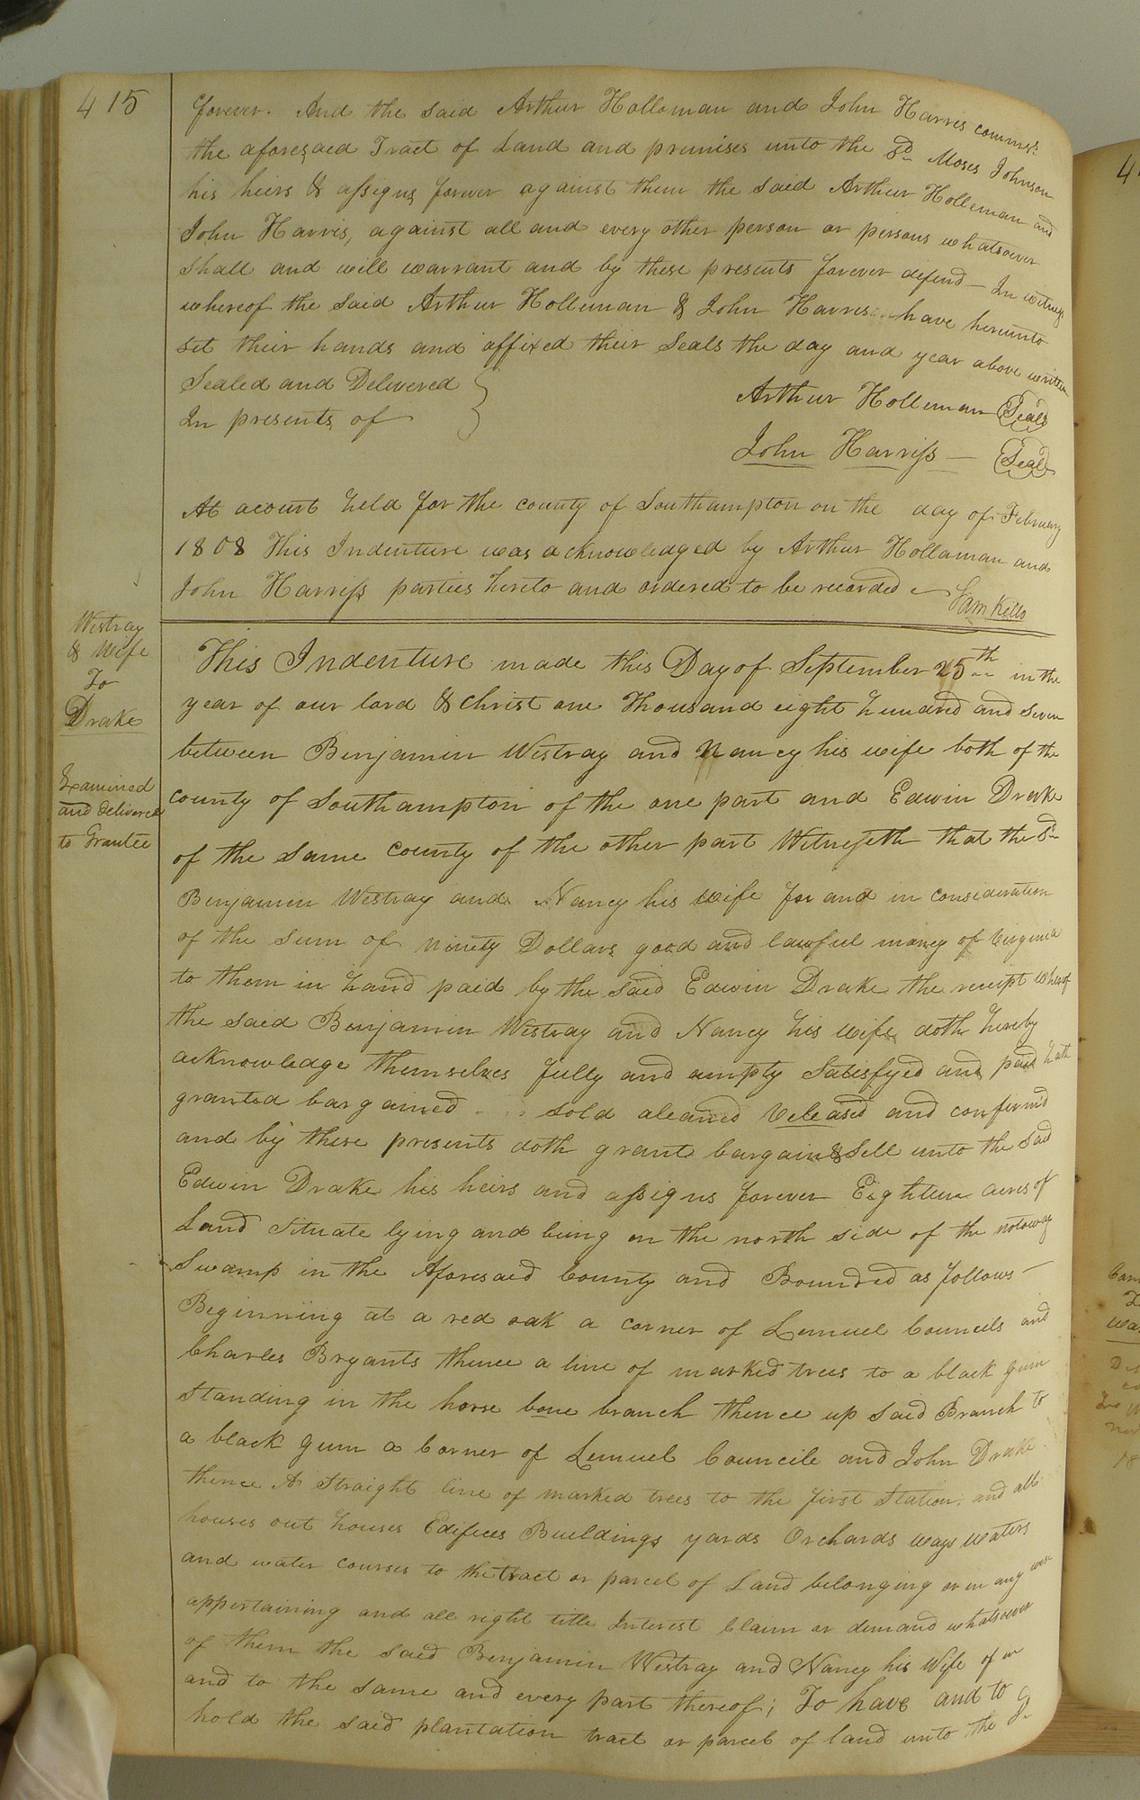 415
forever. And the said Arthur Holloman and John Harres
the aforesaed Tract of Land and premises unto the sd Moses Johnson
his heirs & assigns forever against them the said Arthur Holleman and
John Harris, against all and every other person or persons whatsoever
Shall and will warrant and by these presents forever defend - In witness
whereof the said Arthur Holleman & John Harris have hereunto
set their hands and affixed their Seals the day and year above written
Sealed and Delivered
In presents of
Arthur Holleman Seal
John Harriss — Seal
At acourt held for the county of Southampton on the day of February
1808 This Indenture was acknowledged by Arthur Hollaman and
John Harriss parties hereto and ordered to be recorded
Sam Kello
Westray
& Wife
To
Drake
Examined
and delivered
to Grantee
This Indenture made this Day of September 25th in the
year of our lord & Christ one Thousand eight hundred and Seven
between Benjamin Westray and Nancy his wife both of the
county of Southampton of the one part and Edwin Drake
of the Same county of the other part Witnesseth that the sd
Benjamin Westray and Nancy his wife for and in consideration
of the Sum of ninety Dollars good and lawful money of Virginia
to them in hand paid by the said Edwin Drake the receipt whereof
the saed Benjamin Westray and Nancy his wife doth hereby
acknowledge themselves fully and ampty Satisfyed and paid hath
granted bargained sold aleaned Released and confirmd
and by these presents doth grant bargain & Sell unto the Said
Edwin Drake his heirs and assigns forever Eighteen acres of
Land Situate lying and being on the north side of the notoway
Swamp in the Aforesaed County and Bounded as follows —
Beginniing at a red oak a corner of Lemuel Councels and
Charles Bryants thence a line of marked trees to a black Gum
Standing in the horse bone branch thence up said Branch to
a black gum a Corner of Lemuel Councile and John Drake
thence A Straight line of marked trees to the first Station. and all
houses out houses Edifices Buildings yards Orchards ways waters
and water courses to the tract or parcel of Land belonging or in any wise
appertaining and all right title Interest Claim or demand whatsoever
of them the said Benjamin Westray and Nancy his Wife of in
and to the same and every part thereof; To have and to
hold the said plantation tract or parcel of land unto the sd